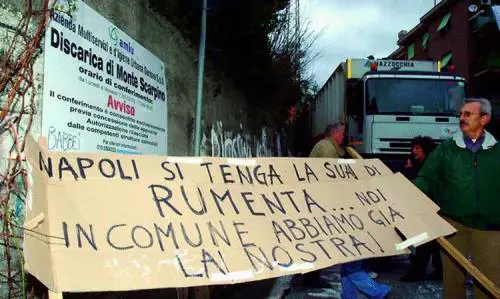 amiu
Azienda Multiservizi e d'Igiene Urbana Genova S.p.A.
Discarica di Monte Scarpino
orario di conferimento:
Avviso
Il conferimento è consentito esclusivamente
previa concessione delle apposite
Autorizzazioni rilasciate
dalle competenti strutture aziendali
BABBEI
MAZZOCCHIA
NAPOLI SI TENGA LA SUA DI
RUMENTA... NOI
IN COMUNE ABBIAMO GIÀ
LA NOSTRA!